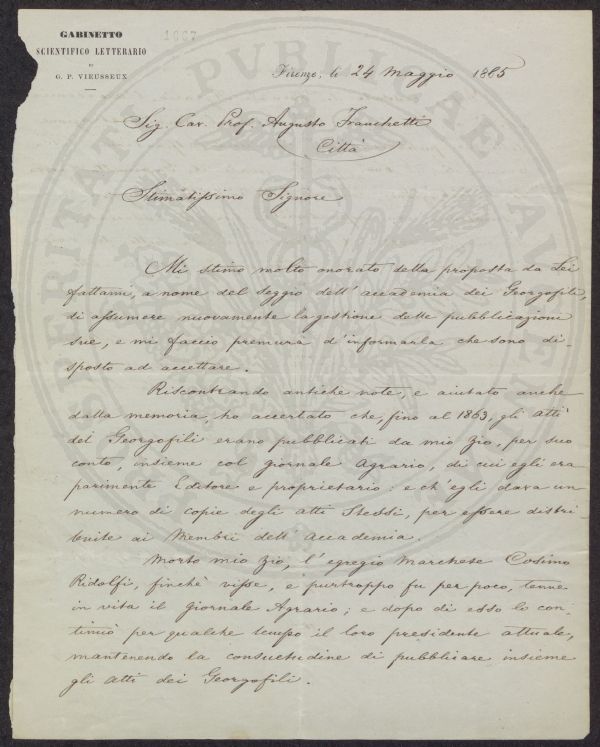 GABINETTO
SCIENTIFICO LETTERARIO
DI
G. P. VIEUSSEUX
1667
Firenze, li 24 Maggio 1885
Sig. Cav. Prof. Augusto Franchetti
Città
Stimatissimo Signore
Mi stimo molto onorato della proposta da Lei
fattami, a nome del Seggio dell'accademia dei Georgofili,
di assumere nuovamente la gestione delle pubblicazioni
sue, e mi faccio premura d'informarla che sono di-
sposto ad accettare.
Riscontrando antiche note, e aiutato anche
dalla memoria, ho accertato che, fino al 1863, gli Atti
dei Georgofili erano pubblicati da mio Zio, per suo
conto, insieme col giornale Agrario, di cui egli era
parimente Editore e proprietario: e ch'egli dava un
numero di copie degli atti stessi, per essere distri-
buite ai Membri dell'Accademia.
Morto mio Zio, l'egregio Marchese Cosimo
Ridolfi, finchè visse, e purtroppo fu per poco, tenne
in vita il giornale Agrario; e dopo di esso lo con-
tinuò per qualche tempo il loro presidente attuale,
mantenendo la consuetudine di pubblicare insieme
gli Atti dei Georgofili.